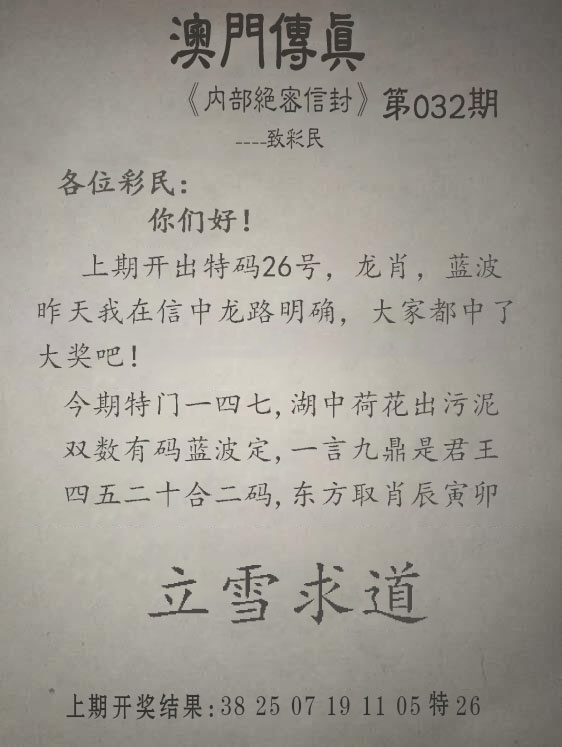 澳門傳眞
《内部絕密信封》第032期
----致彩民
各位彩民：
你们好！
上期开出特码26号，龙肖，蓝波
昨天我在信中龙路明确，大家都中了
大奖吧！
今期特门一四七,湖中荷花出污泥
双数有码蓝波定,一言九鼎是君王
四五二十合二码,东方取肖辰寅卯
立雪求道
上期开奖结果:38 25 07 19 11 05 特 26